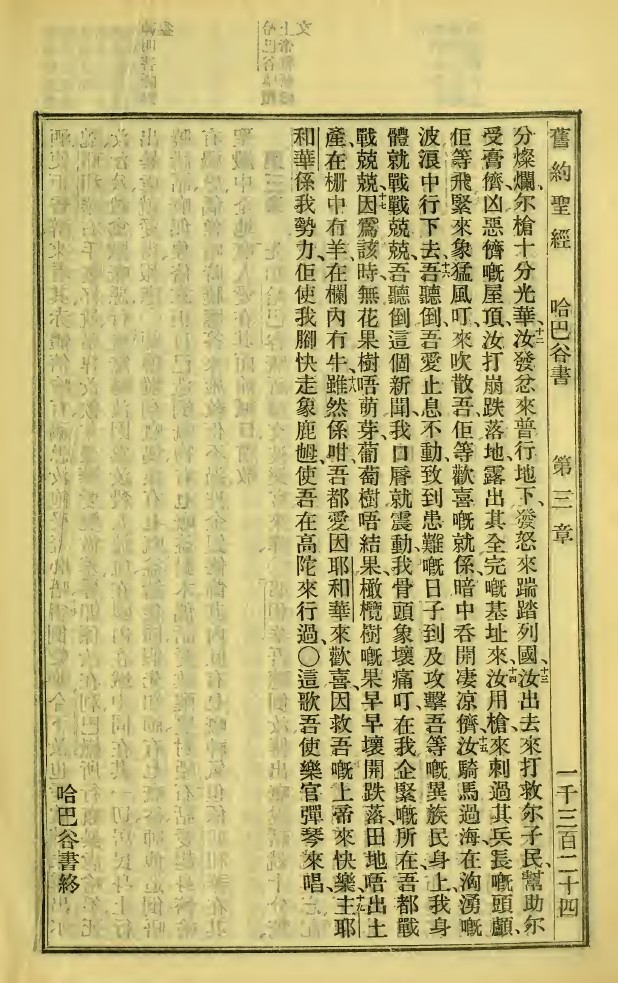 舊約聖經 哈巴谷書 第三章 一千三百二十四
分燦爛、尔槍十分光華、十二汝發忿來普行地下、發怒來踹踏列國、十三汝出去來打救尔子民、幫助尔
受膏儕凶惡儕嘅屋頂、汝打崩跌落地露出其全完嘅基址來、十四汝用槍來刺過其兵長嘅頭顱、
佢等飛緊來象猛風叮、來吹散吾、佢等歡喜嘅就係暗中吞開凄凉儕、十五汝騎馬過海在洶湧嘅
波浪中行下去、十六吾聽倒、吾愛止息不動、致到患難嘅日子到及攻擊吾等嘅異族民身上、我身
體就戰戰兢兢、吾聽倒這個新聞、我口唇就震動、我骨頭象壞痛叮、在我企緊嘅所在、吾都戰
戰兢兢、十七因爲該時無花果樹唔萌芽、葡萄樹唔結果、橄欖樹嘅果早早壞開跌落、田地唔出土
產、在柵中冇羊、在欄內冇牛、十八雖然係咁、吾都愛因耶和華來歡喜、因救吾嘅上帝來快樂、十九主耶
和華係我勢力、佢使我腳快走象鹿𡜵、使吾在高陀來行過、〇這歌吾使樂官彈琴來唱、
哈巴谷書終